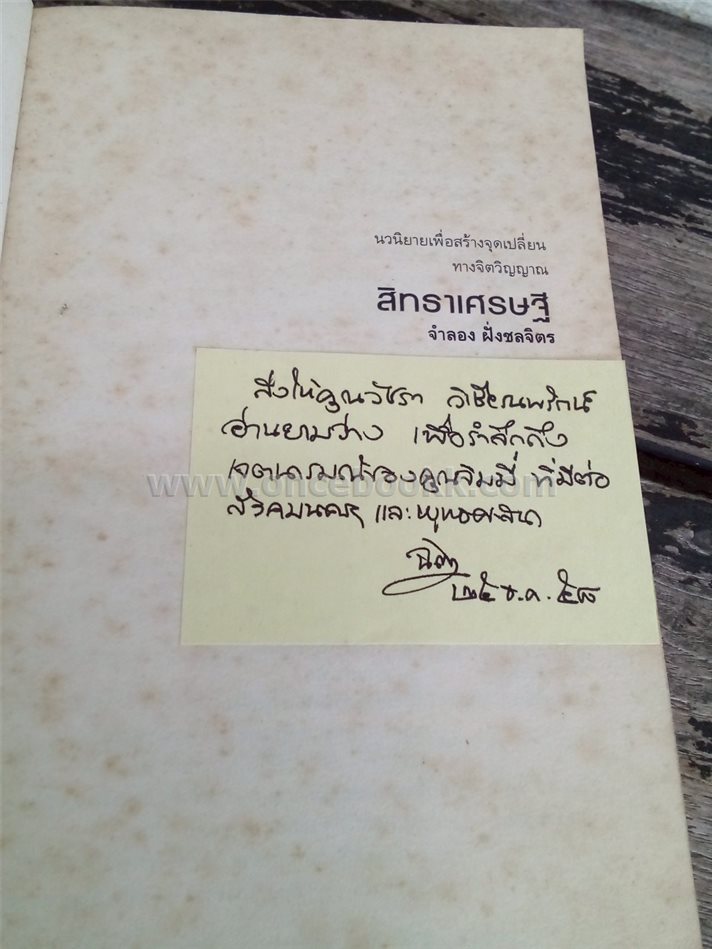 นวนิยายเพื่อสร้างจุดเปลี่ยน
ทางจิตวิญญาณ
สิทราเศรษฐี
จำลอง ฝั่งชลจิตร
ส่งให้คุณวัชรา
อ่านยามว่าง เพื่อรำลึกถึง
เจตนารมณ์ของคุณจิมมี่ ที่มีต่อ
และพุทธศาสนา
www.oncebookk.com
๒๕ ธ.ค. ๕๘